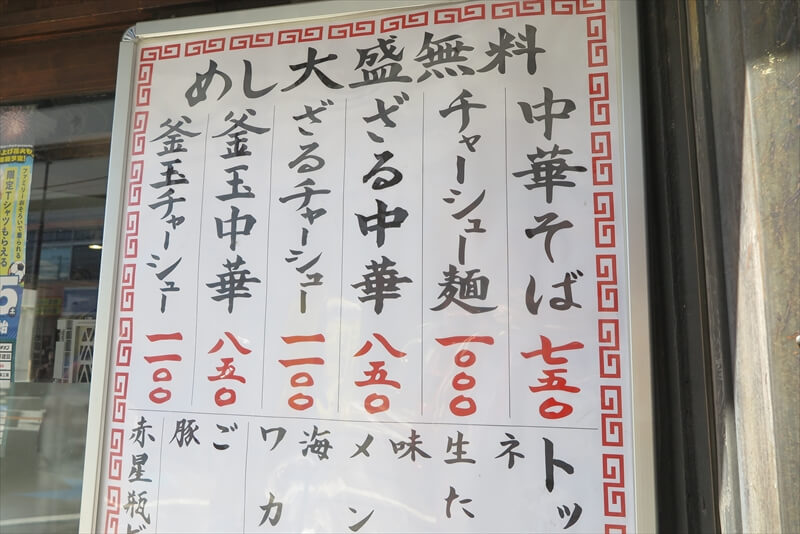 めし大盛無料
中華そば 七五〇
チャーシュー麺 一〇〇〇
ざる中華 八五〇
ざるチャーシュー 一一〇〇
釜玉中華 八五〇
釜玉チャーシュー 一一〇〇
トッ
ネ
生た
味
メン
海
ワカ
ご
豚
赤星瓶ビ
ファミリーおそろいで着られる
限定Tシャツもらえる
5
土
始